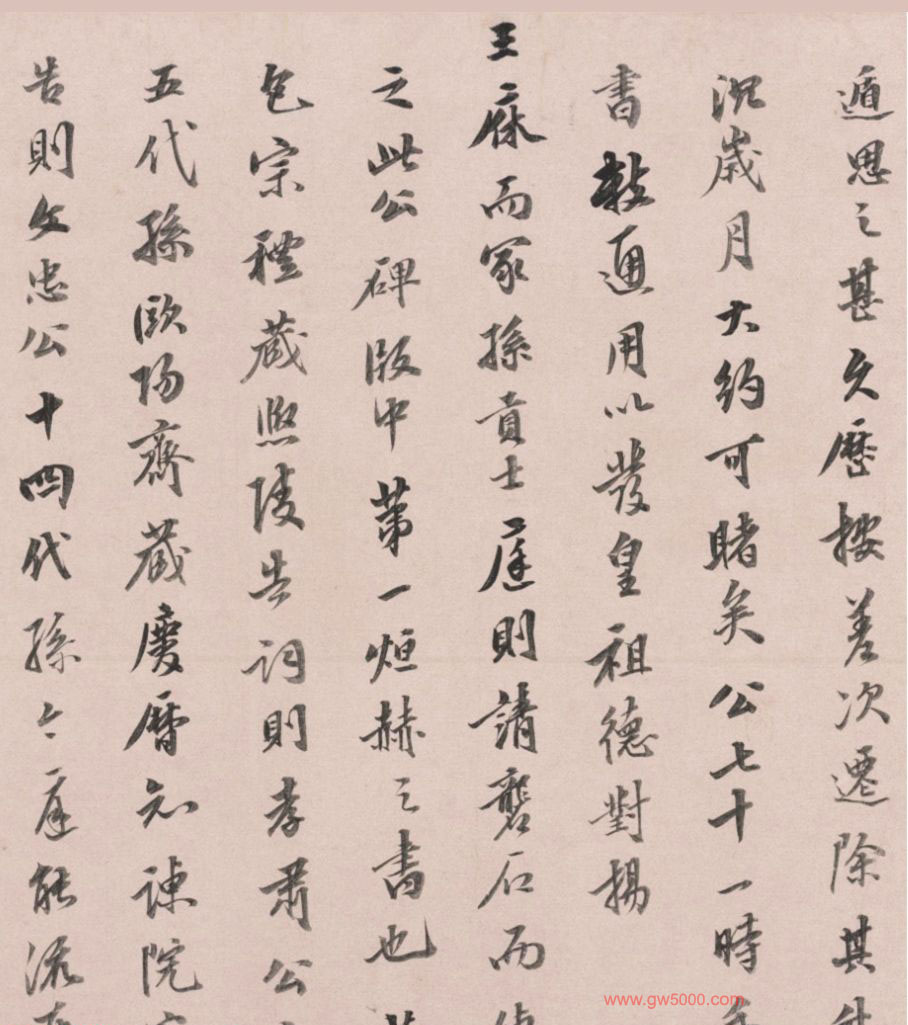 遁思之甚久歷按差次遷除其
涖歲月大約可睹矣公七十一時
書敕通用以發皇祖德對揚
王庥而冢孫貢士庭則請礱石而
之此公碑版中第一烜赫之書也
包宗禮藏熙陵告詞則孝肅公
五代孫歐陽齊藏慶曆知諫院
告則文忠公十四代孫今庭能流
www.gw5000.com